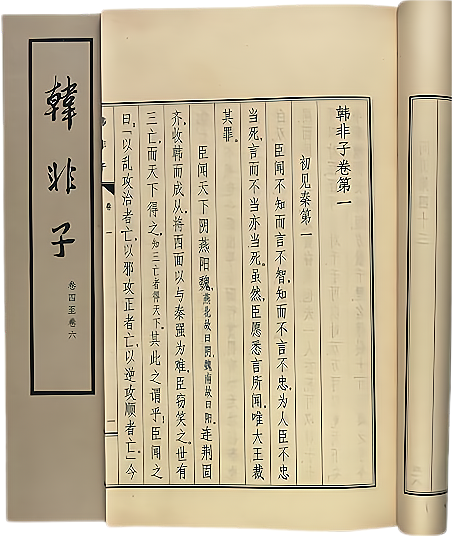 韓非子
卷四至卷六
韩非子卷第一
初见秦第一
臣闻不知而言不智,知而不言不忠,为人臣不忠
当死,言而不当亦当死。虽然,臣愿悉言所闻,唯大王裁
其罪。
臣闻天下阴燕阳魏,燕北故曰阴,魏南故曰阳。连荆固
齐,收韩而成从,将西面以与秦强为难,臣窃笑之。世有
三亡,而天下得之,知三亡者得天下。其此之谓乎!臣闻之
曰:「以乱攻治者亡,以邪攻正者亡,以逆攻顺者亡」今